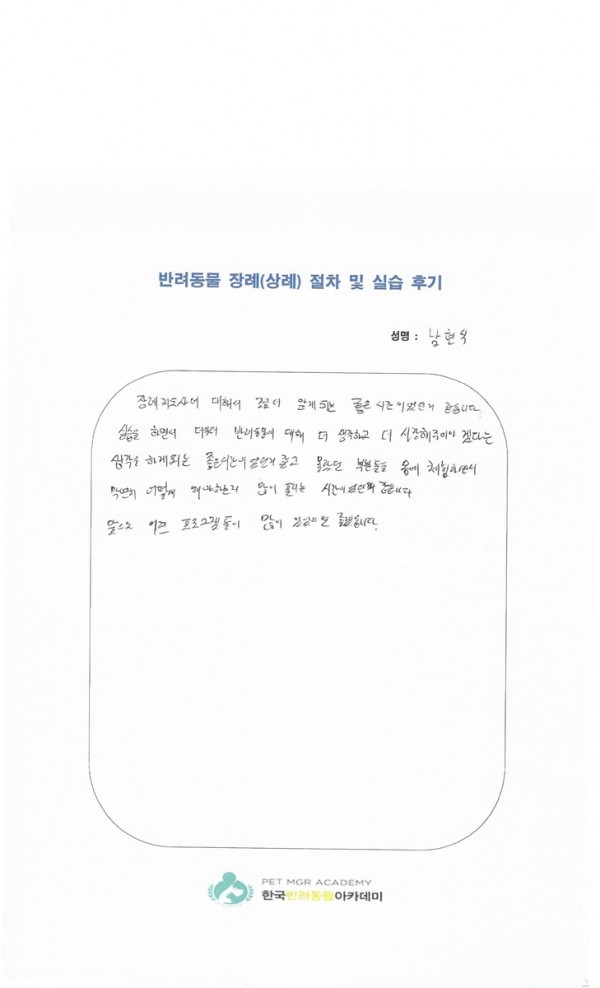 반려동물 장례(상례) 절차 및 실습 후기
성명 : 남현숙
장례지도사에 대해서 조금더 알게되는 좋은 시간이었던거 같습니다.
실습을 하면서 더욱더 반려동물에 대해 더 생각하고 더 시장해주어야 겠다는
생각을 하게되는 좋은시간이었던거 같고 몰랐던 부분들을 몸에 체험하면서
막연히 어떻게 해야하는지 많이 풀리는 시간이었던거 같습니다
앞으로 이런 프로그램들이 많이 있었으면 좋겠습니다.
PET MGR ACADEMY
한국반려동물아카데미